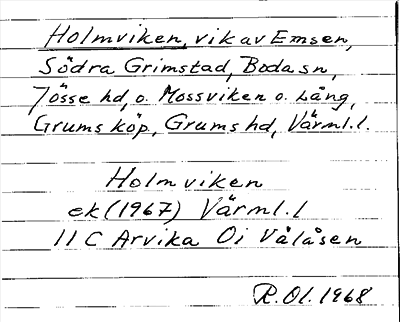 Holmviken, vik av Emsen,
Södra Grimstad, Boda sn,
Jösse hd, o. Mossviken o. Lång,
Grums köp., Grums hd, Värml. l.
Holmviken
ek (1967) Värml. l
11 C Arvika 0i Vålåsen
R. Ol. 1968